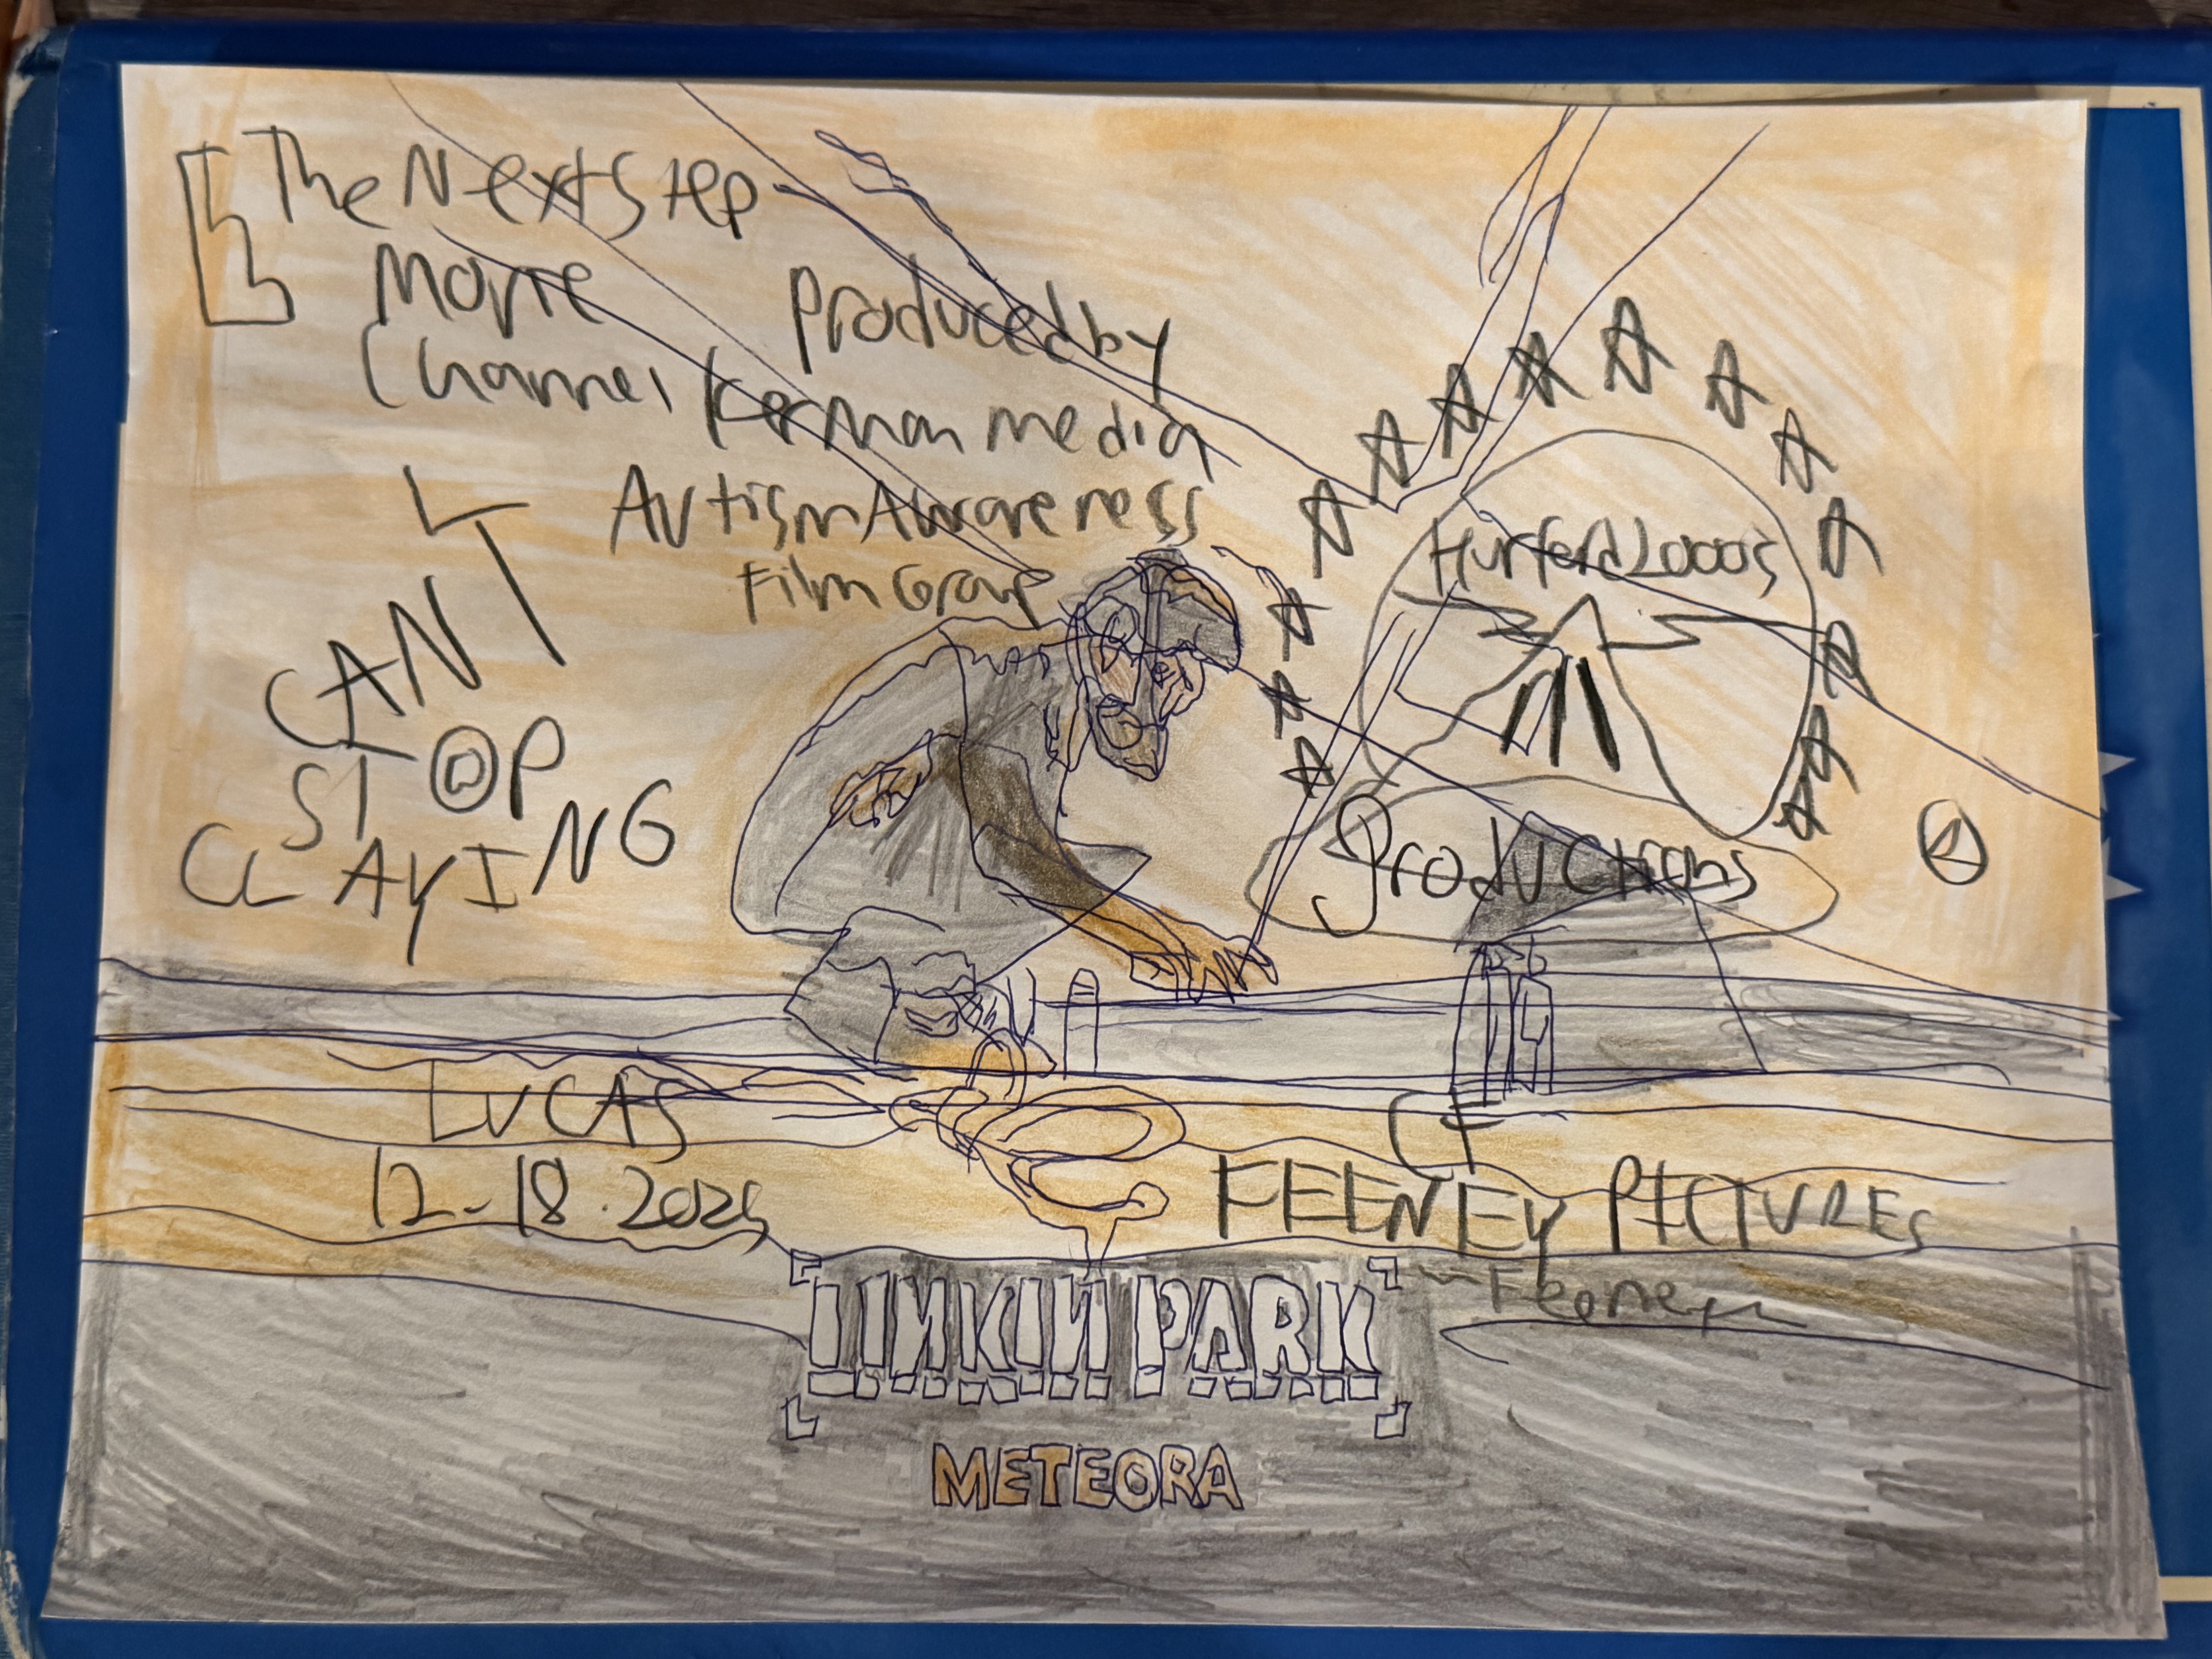 The Next Step
Movie
Channel
Produced by
Kerman Media
Autism Awareness
Film Group
CAN'T
STOP
CLAYING
Productions
LUCAS
12-18.2025
CF
FEENEY PICTURES
LINKIN PARK
METEORA